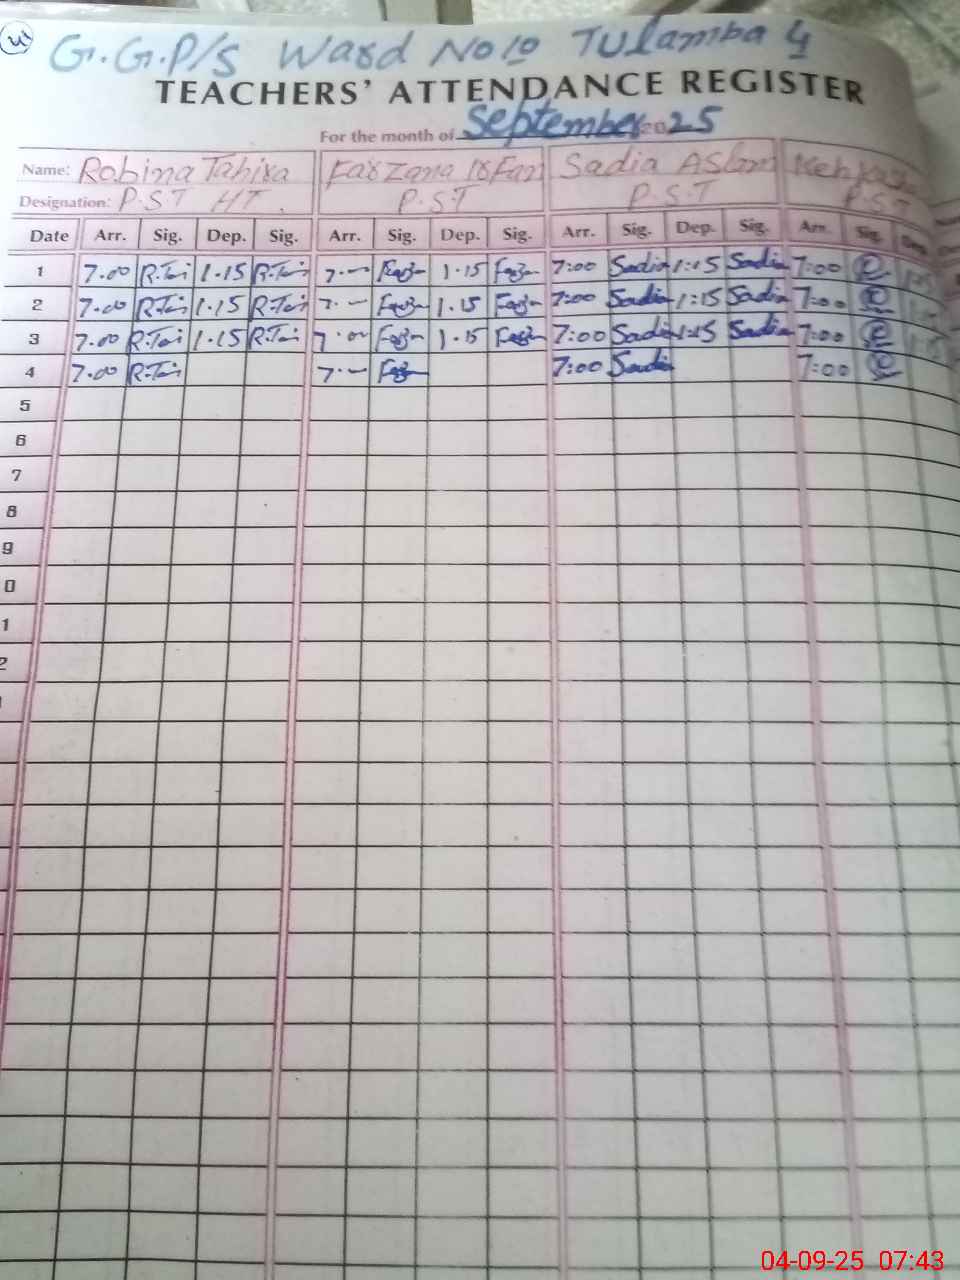 G.G.P/S Ward No 10 Tulamba 4
TEACHERS' ATTENDANCE REGISTER
For the month of September 2025
Name: Robina Tahira Farzana Irfan Sadia Aslam
Designation: P.S.T HT. P.S.T P.S.T P.S.T
Date Arr. Sig. Dep. Sig. Arr. Sig. Dep. Sig. Arr. Sig. Dep. Sig. Arr. Sig. Dep.
1 7.00 R.Tai 1.15 R.Tai 7.— 1.15 7:00 Sadia 1:15 Sadia 7:00 1:15
2 7.00 R.Tai 1.15 R.Tai 7.— 1.15 7:00 Sadia 1:15 Sadia 7:00
3 7.00 R.Tai 1.15 R.Tai 7.00 1.15 7:00 Sadia 1:15 Sadia 7:00 1:15
4 7.00 R.Tai 7.— 7:00 Sadia 7:00
5
6
7
8
9
0
1
2
04-09-25 07:43